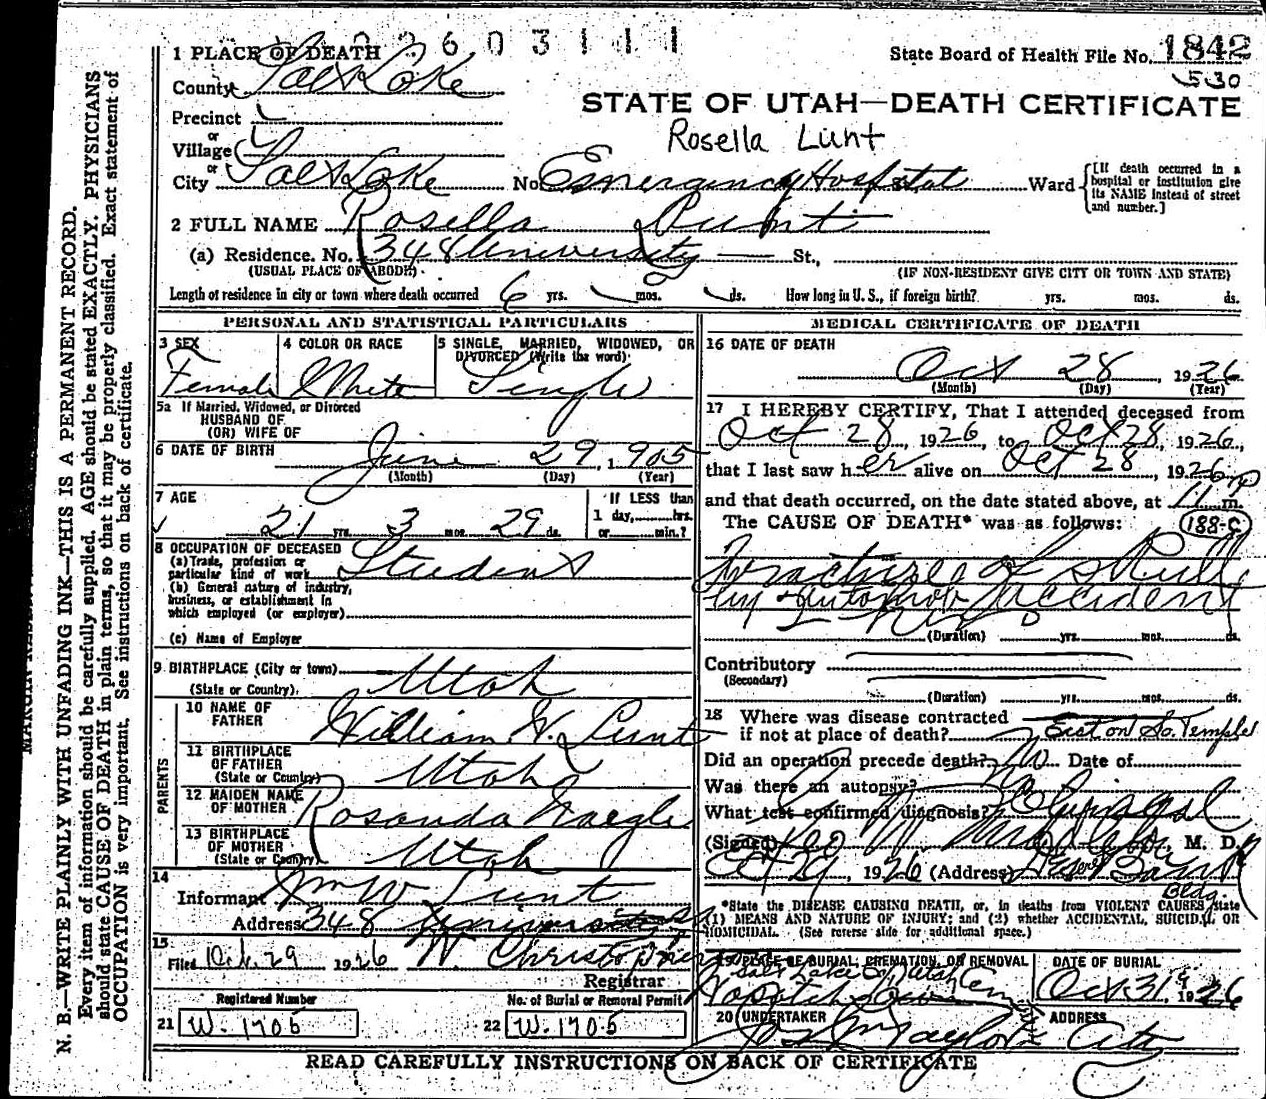 2603111
State Board of Health File No. 1842
530
STATE OF UTAH—DEATH CERTIFICATE
Rosella Lunt
1 PLACE OF DEATH
County Salt Lake
Precinct
or
Village
or
City Salt Lake No. Emergency Hospital St. Ward
[If death occurred in a hospital or institution give its NAME instead of street and number.]
2 FULL NAME Rosella Lunt
(a) Residence. No. 348 University St.,
(USUAL PLACE OF ABODE) (IF NON-RESIDENT GIVE CITY OR TOWN AND STATE)
Length of residence in city or town where death occurred 6 yrs. mos. ds. How long in U. S., if foreign birth? yrs. mos. ds.
PERSONAL AND STATISTICAL PARTICULARS
3 SEX 4 COLOR OR RACE 5 SINGLE, MARRIED, WIDOWED, OR
DIVORCED (Write the word)
Female White Single
5a If Married, Widowed, or Divorced
HUSBAND OF
(OR) WIFE OF
6 DATE OF BIRTH
June 29, 1905
(Month) (Day) (Year)
7 AGE If LESS than
1 day, hrs.
21 yrs. 3 mos. 29 ds. or min.?
8 OCCUPATION OF DECEASED
(a) Trade, profession or
particular kind of work Student
(b) General nature of industry,
business, or establishment in
which employed (or employer)
(c) Name of Employer
9 BIRTHPLACE (City or town)
(State or Country). Utah
PARENTS
10 NAME OF
FATHER William W. Lunt
11 BIRTHPLACE
OF FATHER
(State or Country) Utah
12 MAIDEN NAME
OF MOTHER Rosanda Naegle
13 BIRTHPLACE
OF MOTHER
(State or Country) Utah
14
Informant Wm W Lunt
Address 348 University
15
Filed Oct. 29 1926 W. Christopherson
Registrar
Registered Number No. of Burial or Removal Permit
21 W-1705 22 W-1705
MEDICAL CERTIFICATE OF DEATH
16 DATE OF DEATH
Oct 28, 1926
(Month) (Day) (Year)
17 I HEREBY CERTIFY, That I attended deceased from
Oct 28, 1926, to Oct 28, 1926,
that I last saw her alive on Oct 28, 1926
and that death occurred, on the date stated above, at 11 P m.
The CAUSE OF DEATH* was as follows: 188-C
Fracture of skull
by Automob accident
(Duration) yrs. mos. ds.
Contributory
(Secondary)
(Duration) yrs. mos. ds.
18 Where was disease contracted
if not at place of death? East on So. Temple
Did an operation precede death? No Date of
Was there an autopsy? No
What test confirmed diagnosis?
(Signed) M. D.
Oct 29, 1926 (Address) Deseret Bank
Bldg.
*State the DISEASE CAUSING DEATH, or, in deaths from VIOLENT CAUSES, state
(1) MEANS AND NATURE OF INJURY; and (2) whether ACCIDENTAL, SUICIDAL OR
HOMICIDAL. (See reverse side for additional space.)
19 PLACE OF BURIAL, CREMATION, OR REMOVAL DATE OF BURIAL
Salt Lake City, Utah Cem
Oct 31, 1926
20 UNDERTAKER ADDRESS
Taylor City
READ CAREFULLY INSTRUCTIONS ON BACK OF CERTIFICATE
N. B.—WRITE PLAINLY WITH UNFADING INK—THIS IS A PERMANENT RECORD.
Every item of information should be carefully supplied. AGE should be stated EXACTLY. PHYSICIANS
should state CAUSE OF DEATH in plain terms, so that it may be properly classified. Exact statement of
OCCUPATION is very important. See instructions on back of certificate.